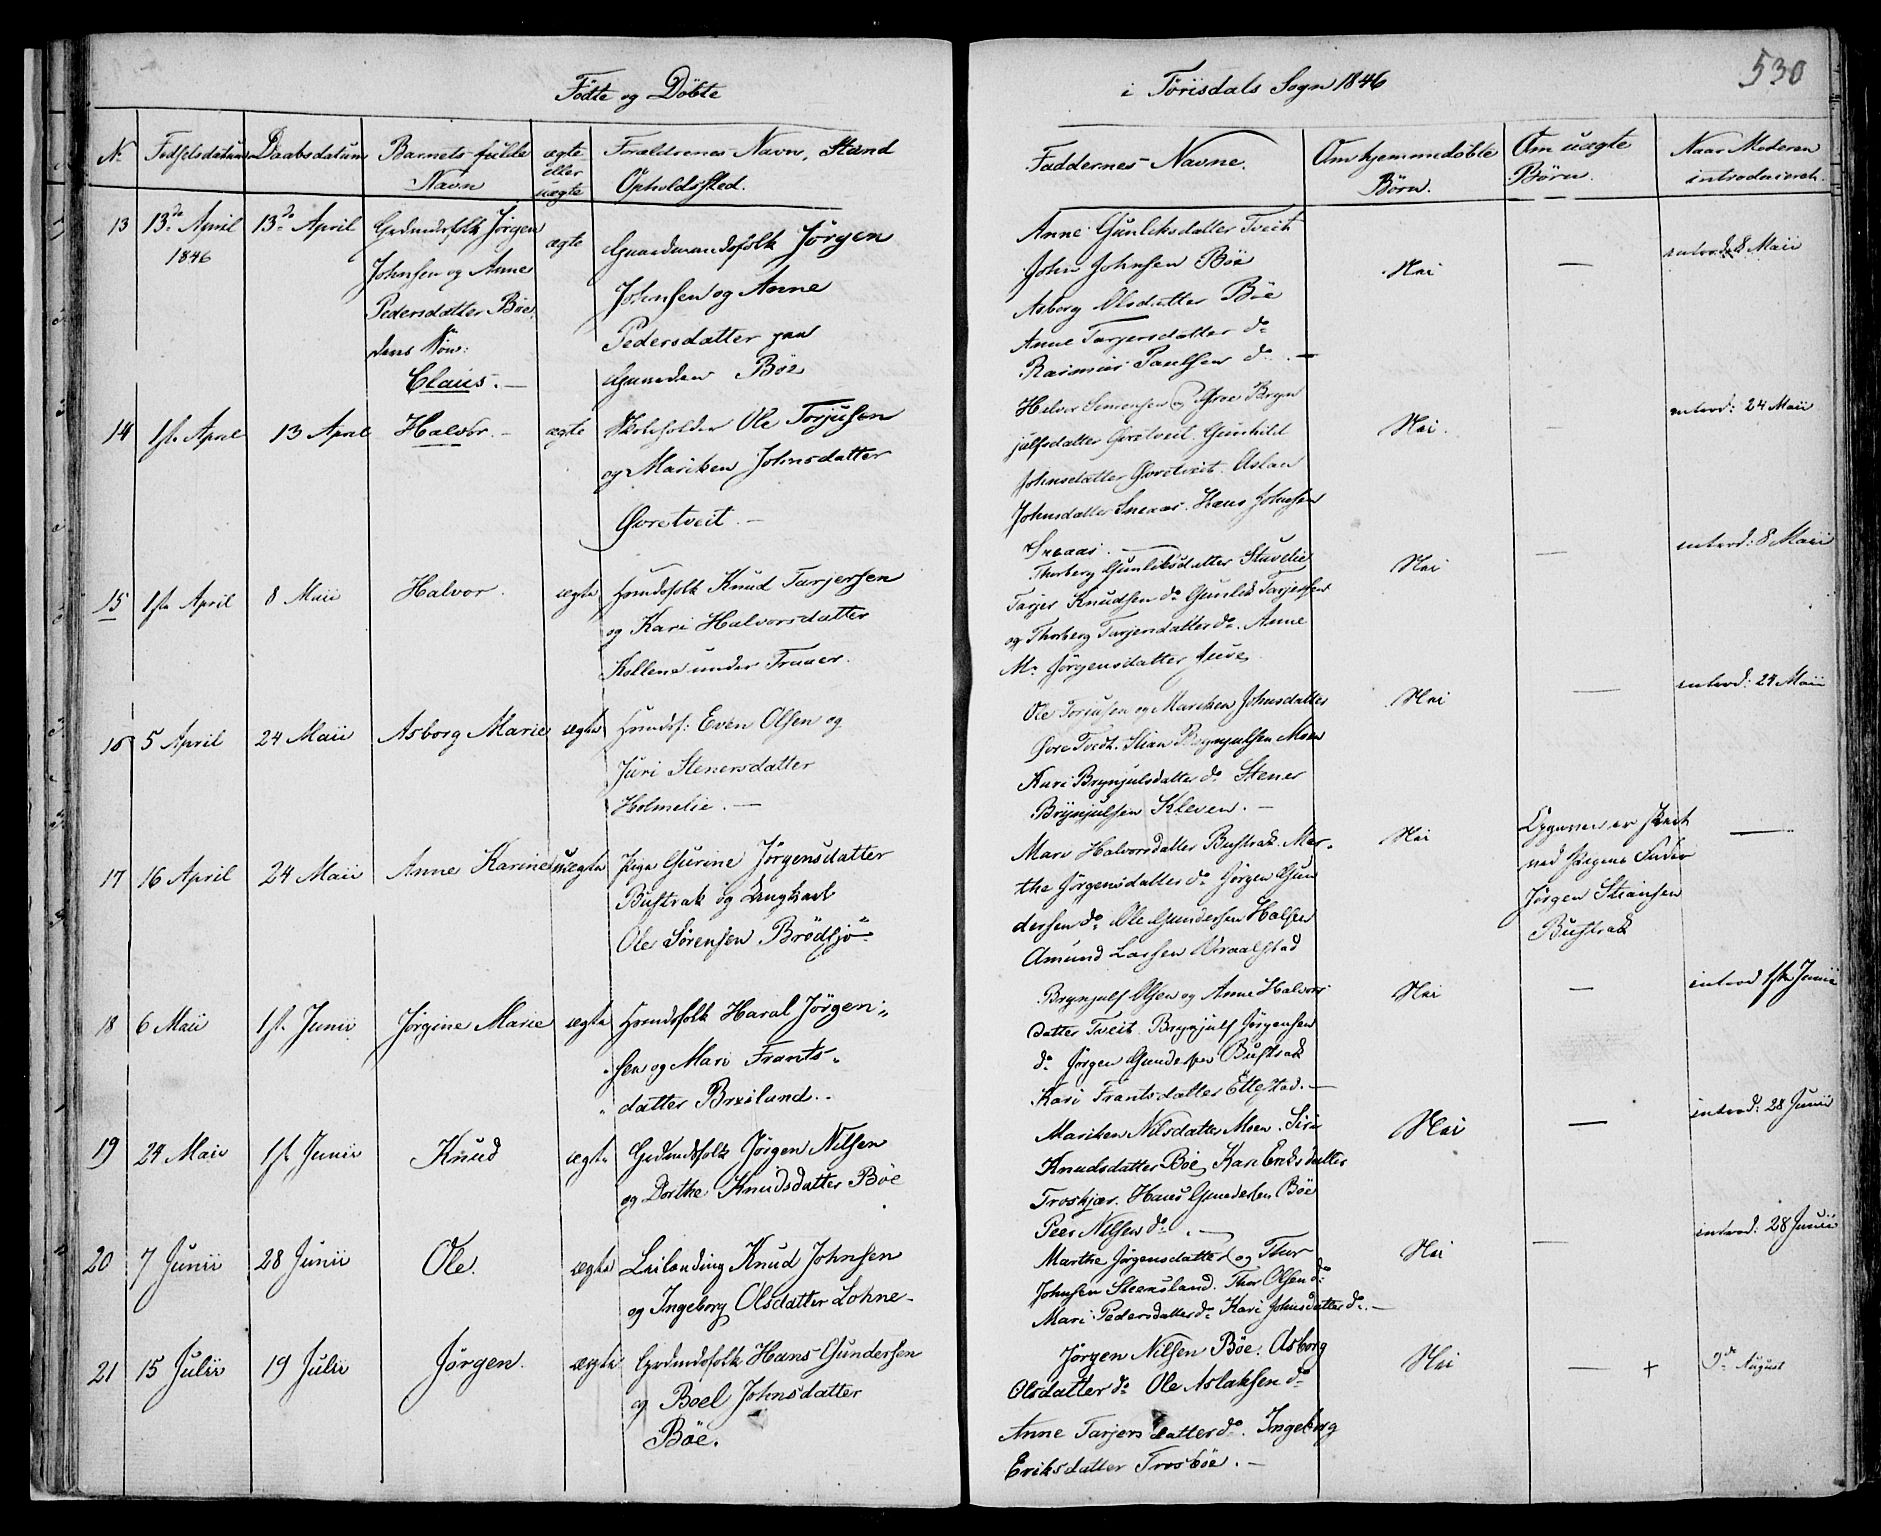 530
Födte og Döbte
i Törisdals Sogn 1846
No Fødselsdatum Daabsdatum Barnets fulde Navn ægte eller uægte Forældrenes Navn, Stand Opholdssted.
Faddernes Navne. Om hjemmedøbte Börn. Om uægte Börn. Naar Moderen introduceret.
13 13de April 1846 13de April
Grdmdsfolk Jörgen
Johnsen og Anne
Pedersdatter Böe
deres Søn:
Claus. —
ægte
Gaardmandsfolk Jörgen
Johnsen og Anne
Pedersdatter paa
Gaarden Böe
Anne Gunleksdatter Tveit
John Johnsen Böe
Asborg Olsdatter Böe
Anne Tarjersdatter do
Rasmus Paulsen do —
Nei
—
introd: 8 Maii
14 1ste April 13 April Halvor. — ægte
Skoleholder Ole Torjusen
og Mariken Johnsdatter
Øvretveit. —
Halvor Simonsen og Groe Bryn
julfsdatter Øvretveit. Gunhild
Johnsdatter Øvretveit. Aslau
Johnsdatter Sneaas. Hans Johnsen
Sneaas. —
Nei.
—
introd: 24 Maii
15 1ste April 8 Maii Halvor. ægte
Hmdsfolk Knud Tarjersen
og Kari Halvorsdatter
Kollene under Traaer.
Thorberg Gunleksdatter Stuvelie
Tarjer Knudsen do Gunlek Tarjersen
og Thorberg Tarjersdatter do. Anne
M. Jörgensdatter Juve
Nei
—
introd: 8 Maii
16 5 April 24 Maii Asborg Marie ægte
Hmdsf: Even Olsen og
Juri Stenersdatter
Holmelie. —
Ole Torjusen og Mariken Johnsdatter
Øvre Tvedt. Stian Brynjulsen Moen
Kari Brynjulsdatter do Stener
Brynjulsen Kleven. —
Nei
—
introd: 24 Maii
17 16 April 24 Maii Anne Karine uægte
Pige Gurine Jörgensdatter
Bustrak og Ungkarl
Ole Sörensen Brödsjö
Mari Halvorsdatter Bustrak. Mar-
the Jörgensdatter do Jörgen Gun
dersen do Ole Gundersen Halsen
Amund Larsen Vraalstad
Nei
Opgaven er skeet
ved Pigens Fader
Jörgen Stiansen
Bustrak
—
18 6 Maii 1ste Junii Jörgine Marie ægte
Hmdsfolk Haral Jörgen-
sen og Mari Frants-
datter Breiland.
Brynjulf Olsen og Anne Halvors
datter Tveit. Brynjulf Jörgensen
do Jörgen Gundersen Bustrak
Kari Frantsdatter Ettestad. —
Nei
—
introd 1ste Junii
19 24 Maii 1ste Junii Knud ægte
Grdmdsfolk Jörgen Nilsen
og Dorthe Knudsdatter Böe
Mariken Nilsdatter Moen. Siri
Knudsdatter Böe, Kari Eriksdatter
Troskjær. Hans Gundersen Böe
Peer Nilsen do. —
Nei
—
introd: 28 Junii
20 7 Junii 28 Junii Ole. ægte
Leilænding Knud Johnsen
og Ingeborg Olsdatter Lohne-
Marthe Jörgensdatter og Thor
Johnsen Steensland. Thor Olsen do
Mari Pedersdatter do Kari Johnsdatter do. —
Nei
—
introd: 28 Junii
21 15 Julii 19 Julii Jörgen. ægte
Grdmdsfolk Hans Gundersen
og Boel Johnsdatter
Böe.
Jörgen Nilsen Böe. Asborg
Olsdatter do Ole Aslaksen do
Anne Tarjersdatter do. Ingeborg
Eriksdatter Trosböe. —
Nei
— +
9de August